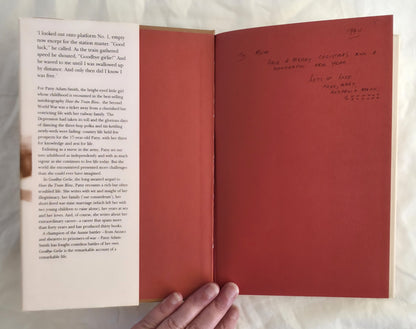 'I looked out onto platform No. 1, empty
now except for the station master. "Good
luck," he called. As the train gathered
speed he shouted, "Goodbye girlie!" And
he waved to me until I was swallowed up
by distance. And only then did I know I
was free.'
For Patsy Adam-Smith, the bright-eyed little girl
whose childhood is recounted in the best-selling
autobiography Hear the Train Blow, the Second
World War was a ticket away from a cherished but
restricting life with her railway family. The
Depression had taken its toll and the glorious days
of dancing the three-hop polka and tin-kettling
newly-weds were fading: country life held few
prospects for the 17-year-old Patsy, with her thirst
for knowledge and zest for life.
Enlisting as a nurse in the army, Patsy set out
into adulthood as independently and with as much
vigour as she continues to live life today. But the
world she encountered presented more challenges
than she could ever have imagined.
In Goodbye Girlie, the long-awaited sequel to
Hear the Train Blow, Patsy recounts a rich but often
troubled life. She writes with wit and insight of her
illegitimacy, her family ('our comedians'), her
short-lived war-time marriage (which left her with
two young children to raise alone), her years at sea
and her loves. And, of course, she writes about her
extraordinary career – a career that spans more
than forty years and has produced thirty books.
A champion of the Aussie battler – from Anzacs
and shearers to prisoners of war – Patsy Adam-
Smith has fought countless battles of her own.
Goodbye Girlie is the remarkable account of a
remarkable life.
1994
MUM
HAVE A MERRY CHRISTMAS AND A
WONDERFUL NEW YEAR
LOTS OF LOVE